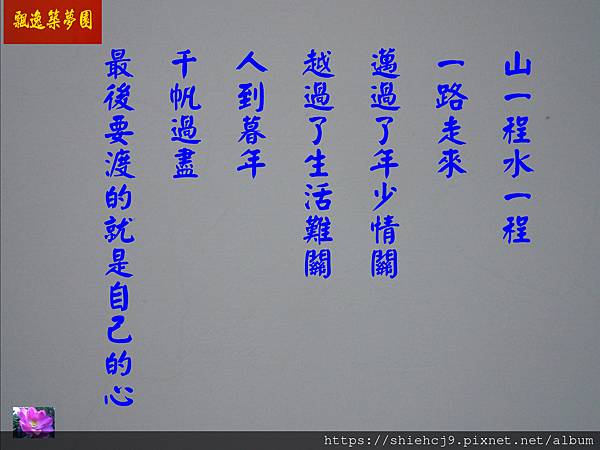 飄逸築夢園
山一程水一程
一路走來
邁過了年少情關
越過了生活難關
人到暮年
千帆過盡
最後要渡的就是自己的心
https://shiehcj9.pixnet.net/album